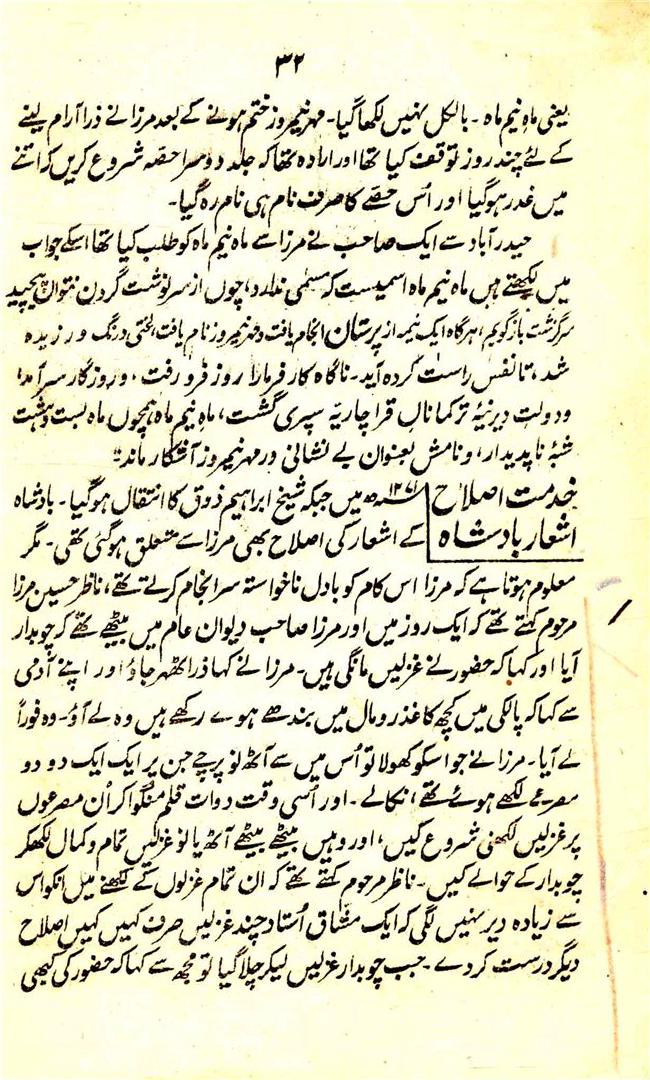 ۳۲
یعنی ماہ نیم ماہ۔ بالکل نہیں لکھا گیا۔ مہر نیمروز ختم ہونے کے بعد مرزا نے ذرا آرام لینے
کے لئے چند روز توقف کیا تھا اور ارادہ تھا کہ جلد دوسرا حصّہ شروع کریں کہ اتنے
میں غدر ہوگیا اور اُس حصّے کا صرف نام ہی نام رہ گیا۔
حیدرآباد سے ایک صاحب نے مرزا سے ماہ نیم ماہ کو طلب کیا تھا اسکے جواب
میں لکھتے ہیں ماہ نیم ماہ اسمیست کہ مسمی ندارد، چوں از سرنوشت گردن نتواں پیچید
سرگذشت بازگویم، ہرگاہ ایک نیمہ از پرستان انجام یافت و مہر نیمروز نام یافت لختی درنگ ورزیدہ
شد، تا نفس راست کردہ آید۔ ناگاہ کار فرما را روز فرو رفت، و روزگار سر آمد،
و دولت دیرینۂ ترکمانان قراچاریہ سپری گشت، ماہ نیم ماہ ہمچوں ماہ بست و ہشت
شبہ ناپدیدار، و نامش بعنوان بے نشانی در مہر نیمروز آشکار ماند
خدمت اصلاح
اشعار بادشاہ
۱۲۷۱ھ میں جبکہ شیخ ابراہیم ذوق کا انتقال ہوگیا۔ بادشاہ
کے اشعار کی اصلاح بھی مرزا سے متعلق ہوگئی تھی۔ مگر
معلوم ہوتا ہے کہ مرزا اس کام کو بادل ناخواستہ سرانجام کرتے تھے، ناظر حسین مرزا
مرحوم کہتے تھے کہ ایک روز میں اور مرزا صاحب دیوان عام میں بیٹھے تھے کہ چوبدار
آیا اور کہا کہ حضور نے غزلیں مانگی ہیں۔ مرزا نے کہا ذرا ٹھہر جاؤ اور اپنے آدمی
سے کہا کہ پالکی میں کچھ کاغذ رومال میں بندھے ہوے رکھے ہیں وہ لے آؤ۔ وہ فوراً
لے آیا۔ مرزا نے جو اسکو کھولا تو اُس میں سے آٹھ نو پرچے جن پر ایک ایک دو دو
مصرعے لکھے ہوئے تھے، نکالے۔ اور اُسی وقت دوات قلم منگوا کر اُن مصرعوں
پر غزلیں لکھنی شروع کیں، اور وہیں بیٹھے بیٹھے آٹھ یا نو غزلیں تمام و کمال لکھکر
چوبدار کے حوالے کیں۔ ناظر مرحوم کہتے تھے کہ ان تمام غزلوں کے لکھنے میں انکو اس
سے زیادہ دیر نہیں لگی کہ ایک مشّاق اُستاد چند غزلیں صرف کہیں کہیں اصلاح
دیگر درست کر دے۔ جب چوبدار غزلیں لیکر چلا گیا تو مجھ سے کہا کہ حضور کی کبھی